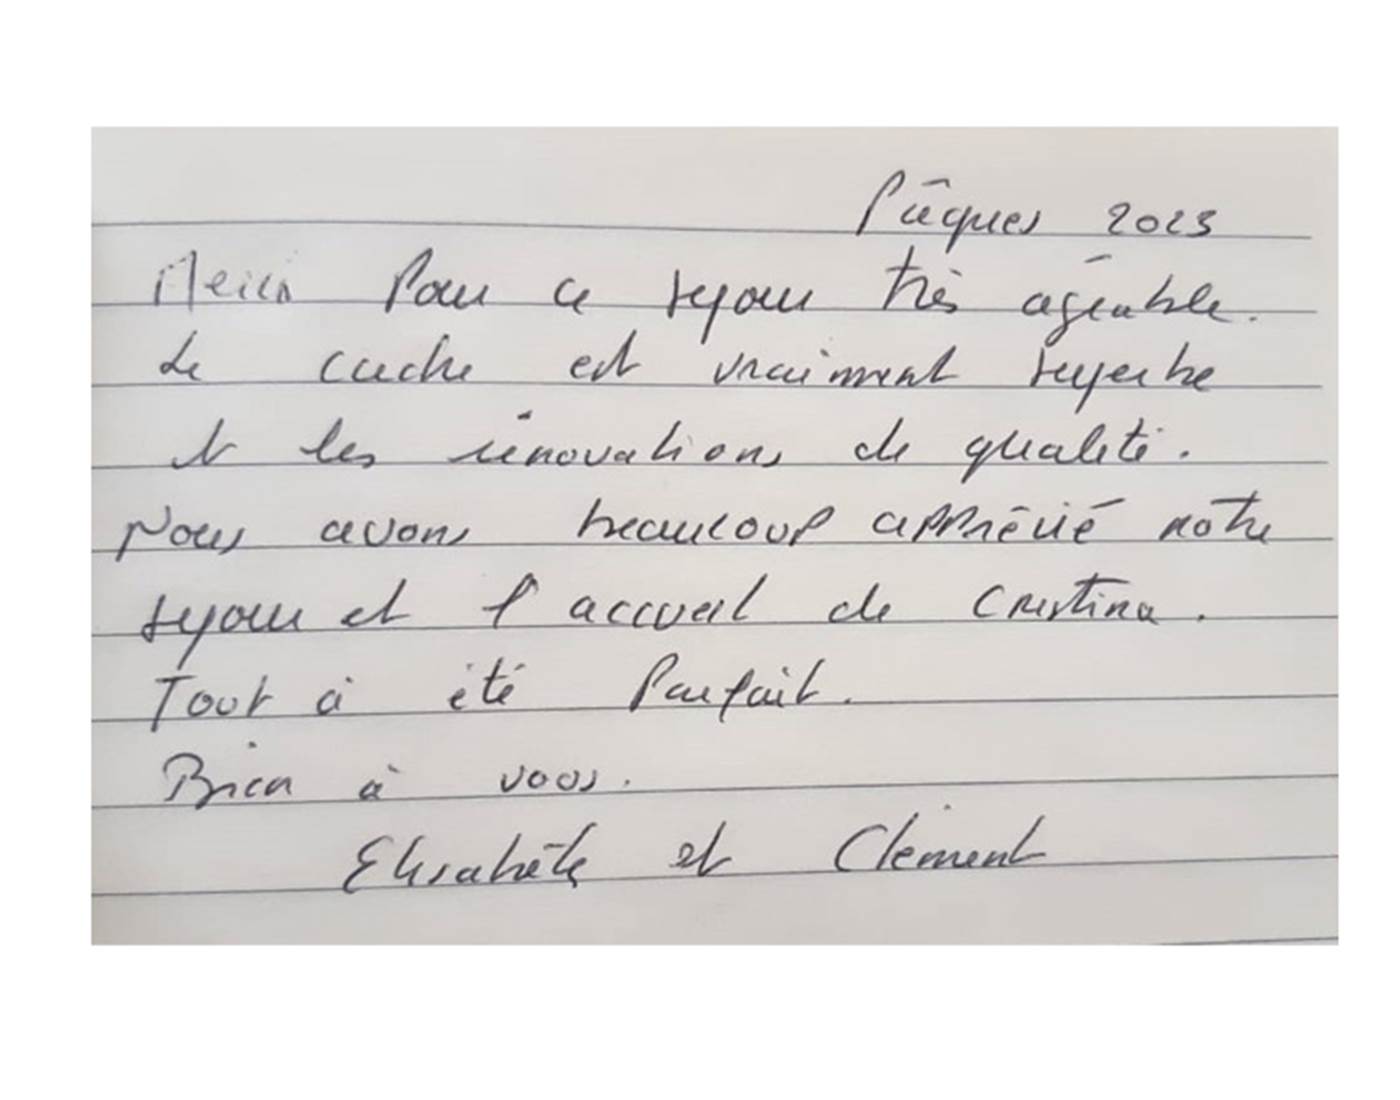 Pâques 2023
Merci Pour ce séjour très agréable.
Le cadre est vraiment superbe
et les rénovations de qualité.
Nous avons beaucoup apprécié notre
séjour et l'accueil de Cristina.
Tout à été Parfait.
Bien à vous.
Elisabeth et Clément